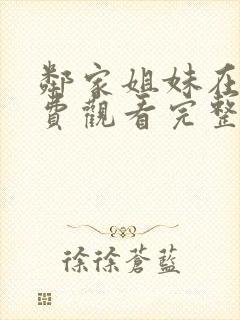 鄰家姐妹在
費觀看完整
徐徐蒼藍